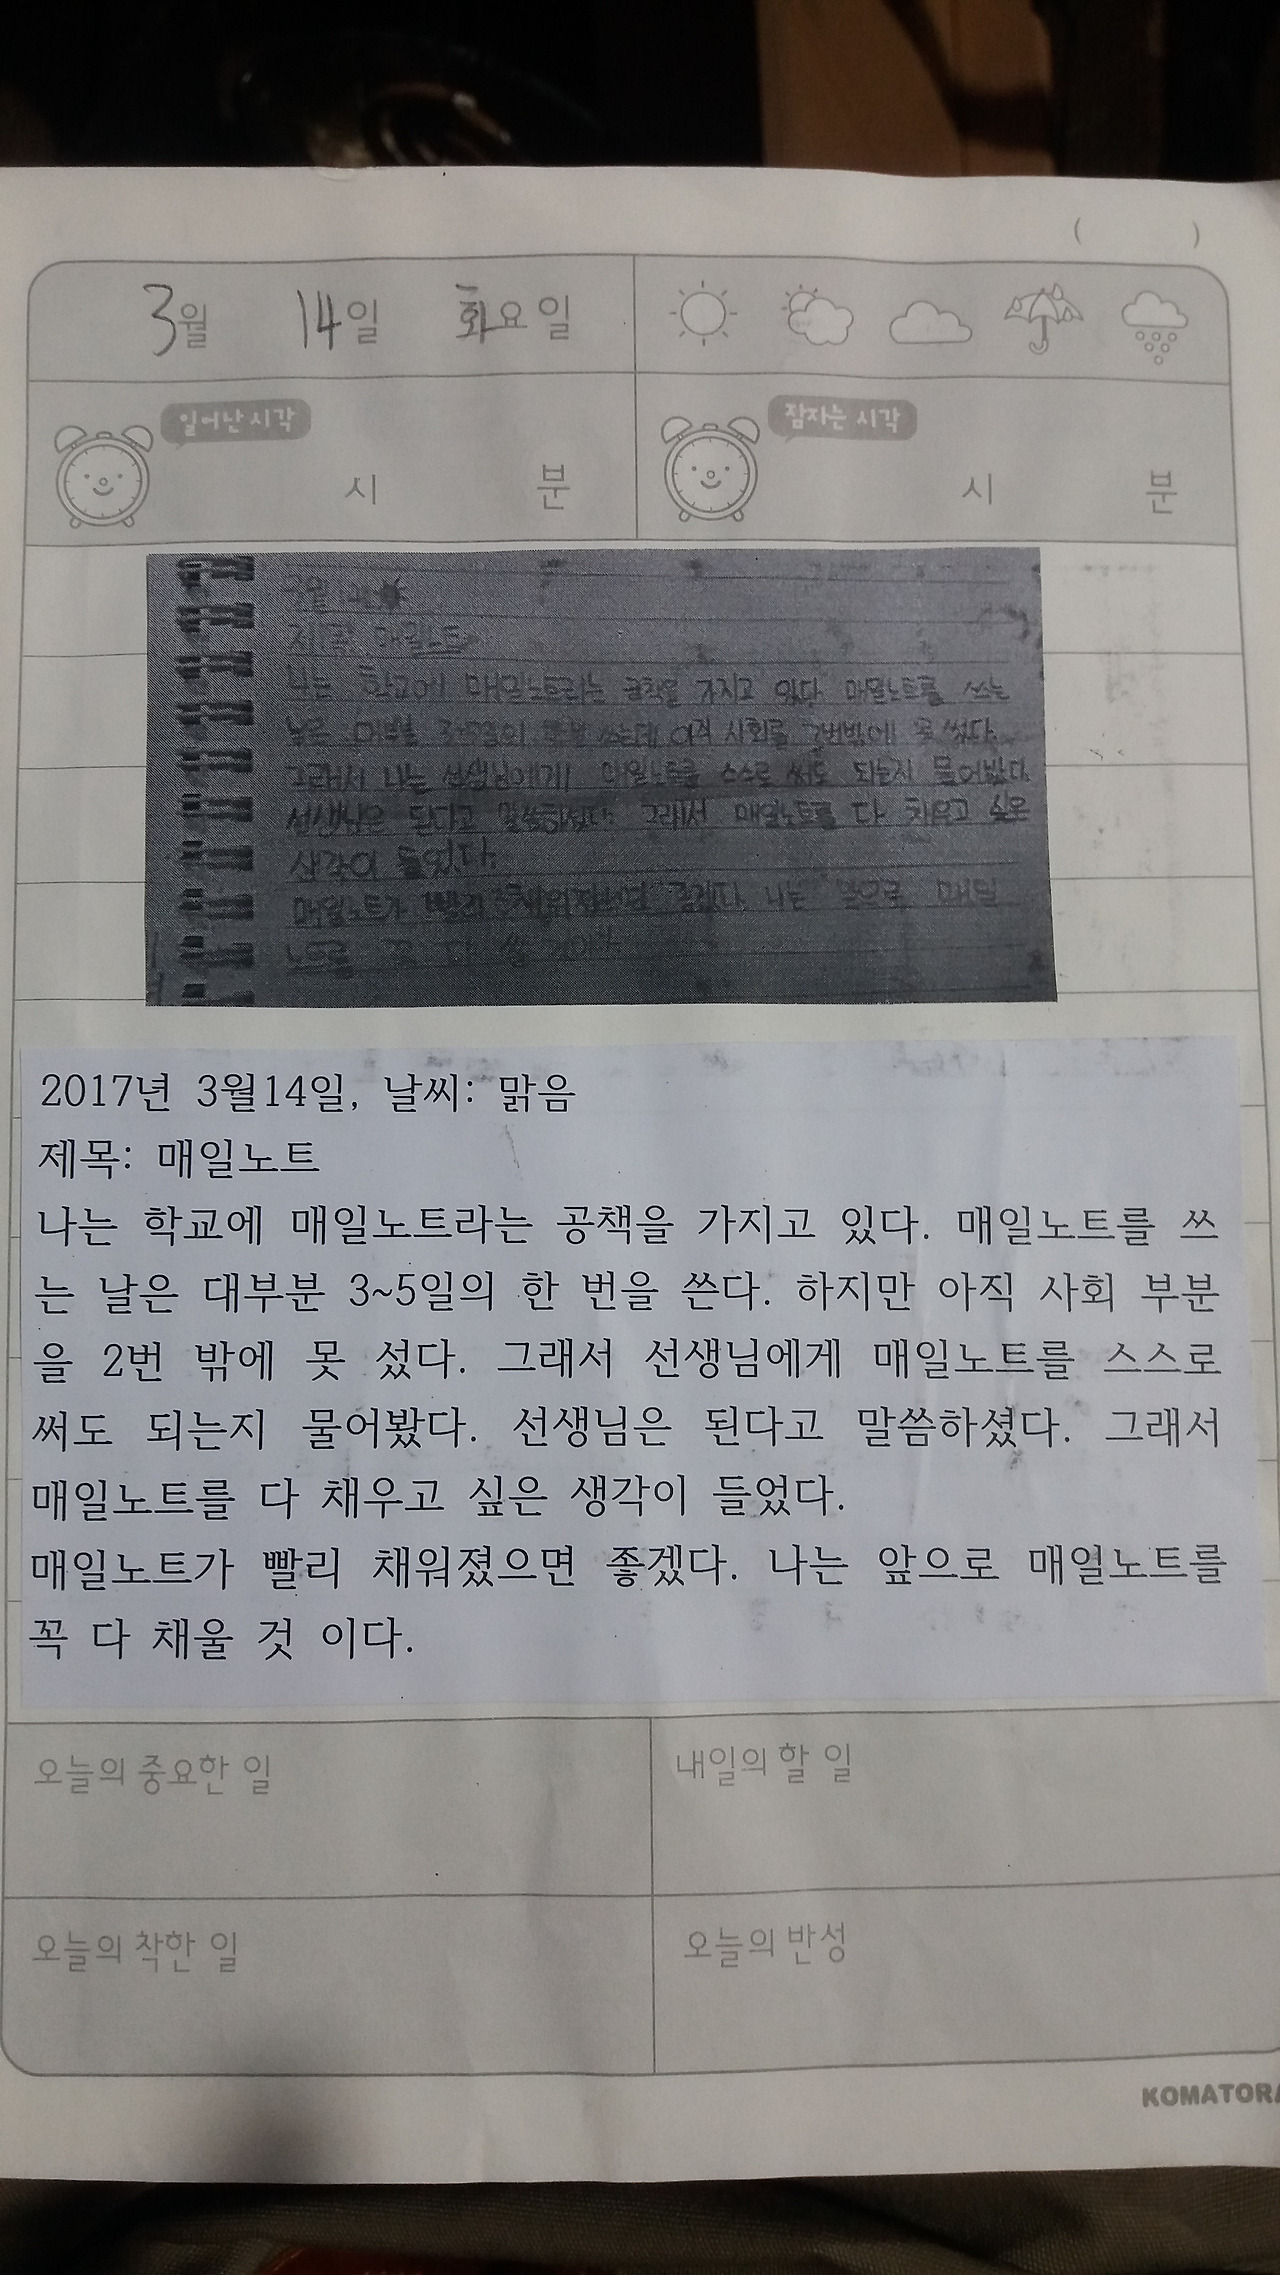 ( )
3월 14일 화요일
일어난 시각 잠자는 시각
시 분 시 분
제목 매일노트
나는 학교에 매일노트라는 공책을 가지고 있다. 매일노트를 쓰는
쓰는데 아직 사회를 2번밖에 못 썼다.
그래서 나는 선생님에게 매일노트를 스스로 써도 되는지 물어봤다.
선생님은 된다고 말씀하셨다. 그래서 매일노트를 다 채우고 싶은
생각이 들었다.
매일노트가 빨리 좋겠다. 나는 앞으로 매일
노트를 꼭 다
2017년 3월14일, 날씨: 맑음
제목: 매일노트
나는 학교에 매일노트라는 공책을 가지고 있다. 매일노트를 쓰
는 날은 대부분 3~5일의 한 번을 쓴다. 하지만 아직 사회 부분
을 2번 밖에 못 섰다. 그래서 선생님에게 매일노트를 스스로
써도 되는지 물어봤다. 선생님은 된다고 말씀하셨다. 그래서
매일노트를 다 채우고 싶은 생각이 들었다.
매일노트가 빨리 채워졌으면 좋겠다. 나는 앞으로 매일노트를
꼭 다 채울 것 이다.
오늘의 중요한 일 내일의 할 일
오늘의 착한 일 오늘의 반성
KOMATORA